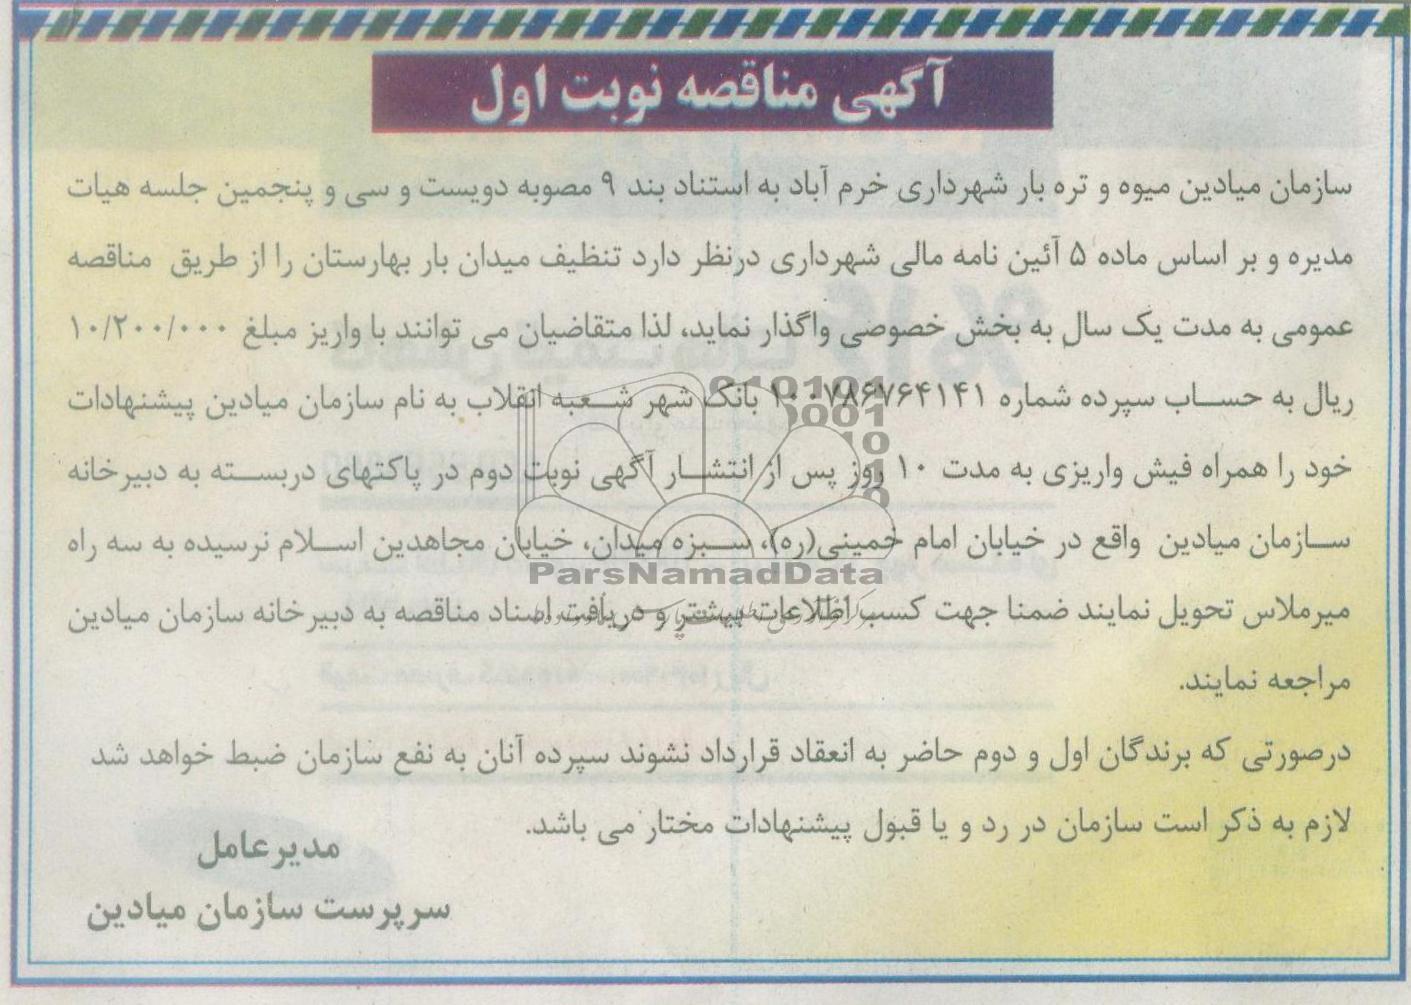 آگهی مناقصه نوبت اول
سازمان میادین میوه و تره بار شهرداری خرم آباد به استناد بند ۹ مصوبه دویست و سی و پنجمین جلسه هیات
مدیره و بر اساس ماده ۵ آئین نامه مالی شهرداری درنظر دارد تنظیف میدان بار بهارستان را از طریق مناقصه
عمومی به مدت یک سال به بخش خصوصی واگذار نماید، لذا متقاضیان می توانند با واریز مبلغ ۱۰/۲۰۰/۰۰۰
ریال به حساب سپرده شماره ۱۰۰۷۸۶۷۶۴۱۴۱ بانک شهر شعبه انقلاب به نام سازمان میادین پیشنهادات
خود را همراه فیش واریزی به مدت ۱۰ روز پس از انتشار آگهی نوبت دوم در پاکتهای دربسته به دبیرخانه
سازمان میادین واقع در خیابان امام خمینی(ره)، سبزه میدان، خیابان مجاهدین اسلام نرسیده به سه راه
ParsNamadData
میرملاس تحویل نمایند ضمنا جهت کسب اطلاعات بیشتر و دریافت اسناد مناقصه به دبیرخانه سازمان میادین
مراجعه نمایند.
درصورتی که برندگان اول و دوم حاضر به انعقاد قرارداد نشوند سپرده آنان به نفع سازمان ضبط خواهد شد
لازم به ذکر است سازمان در رد و یا قبول پیشنهادات مختار می باشد.
مدیرعامل
سرپرست سازمان میادین